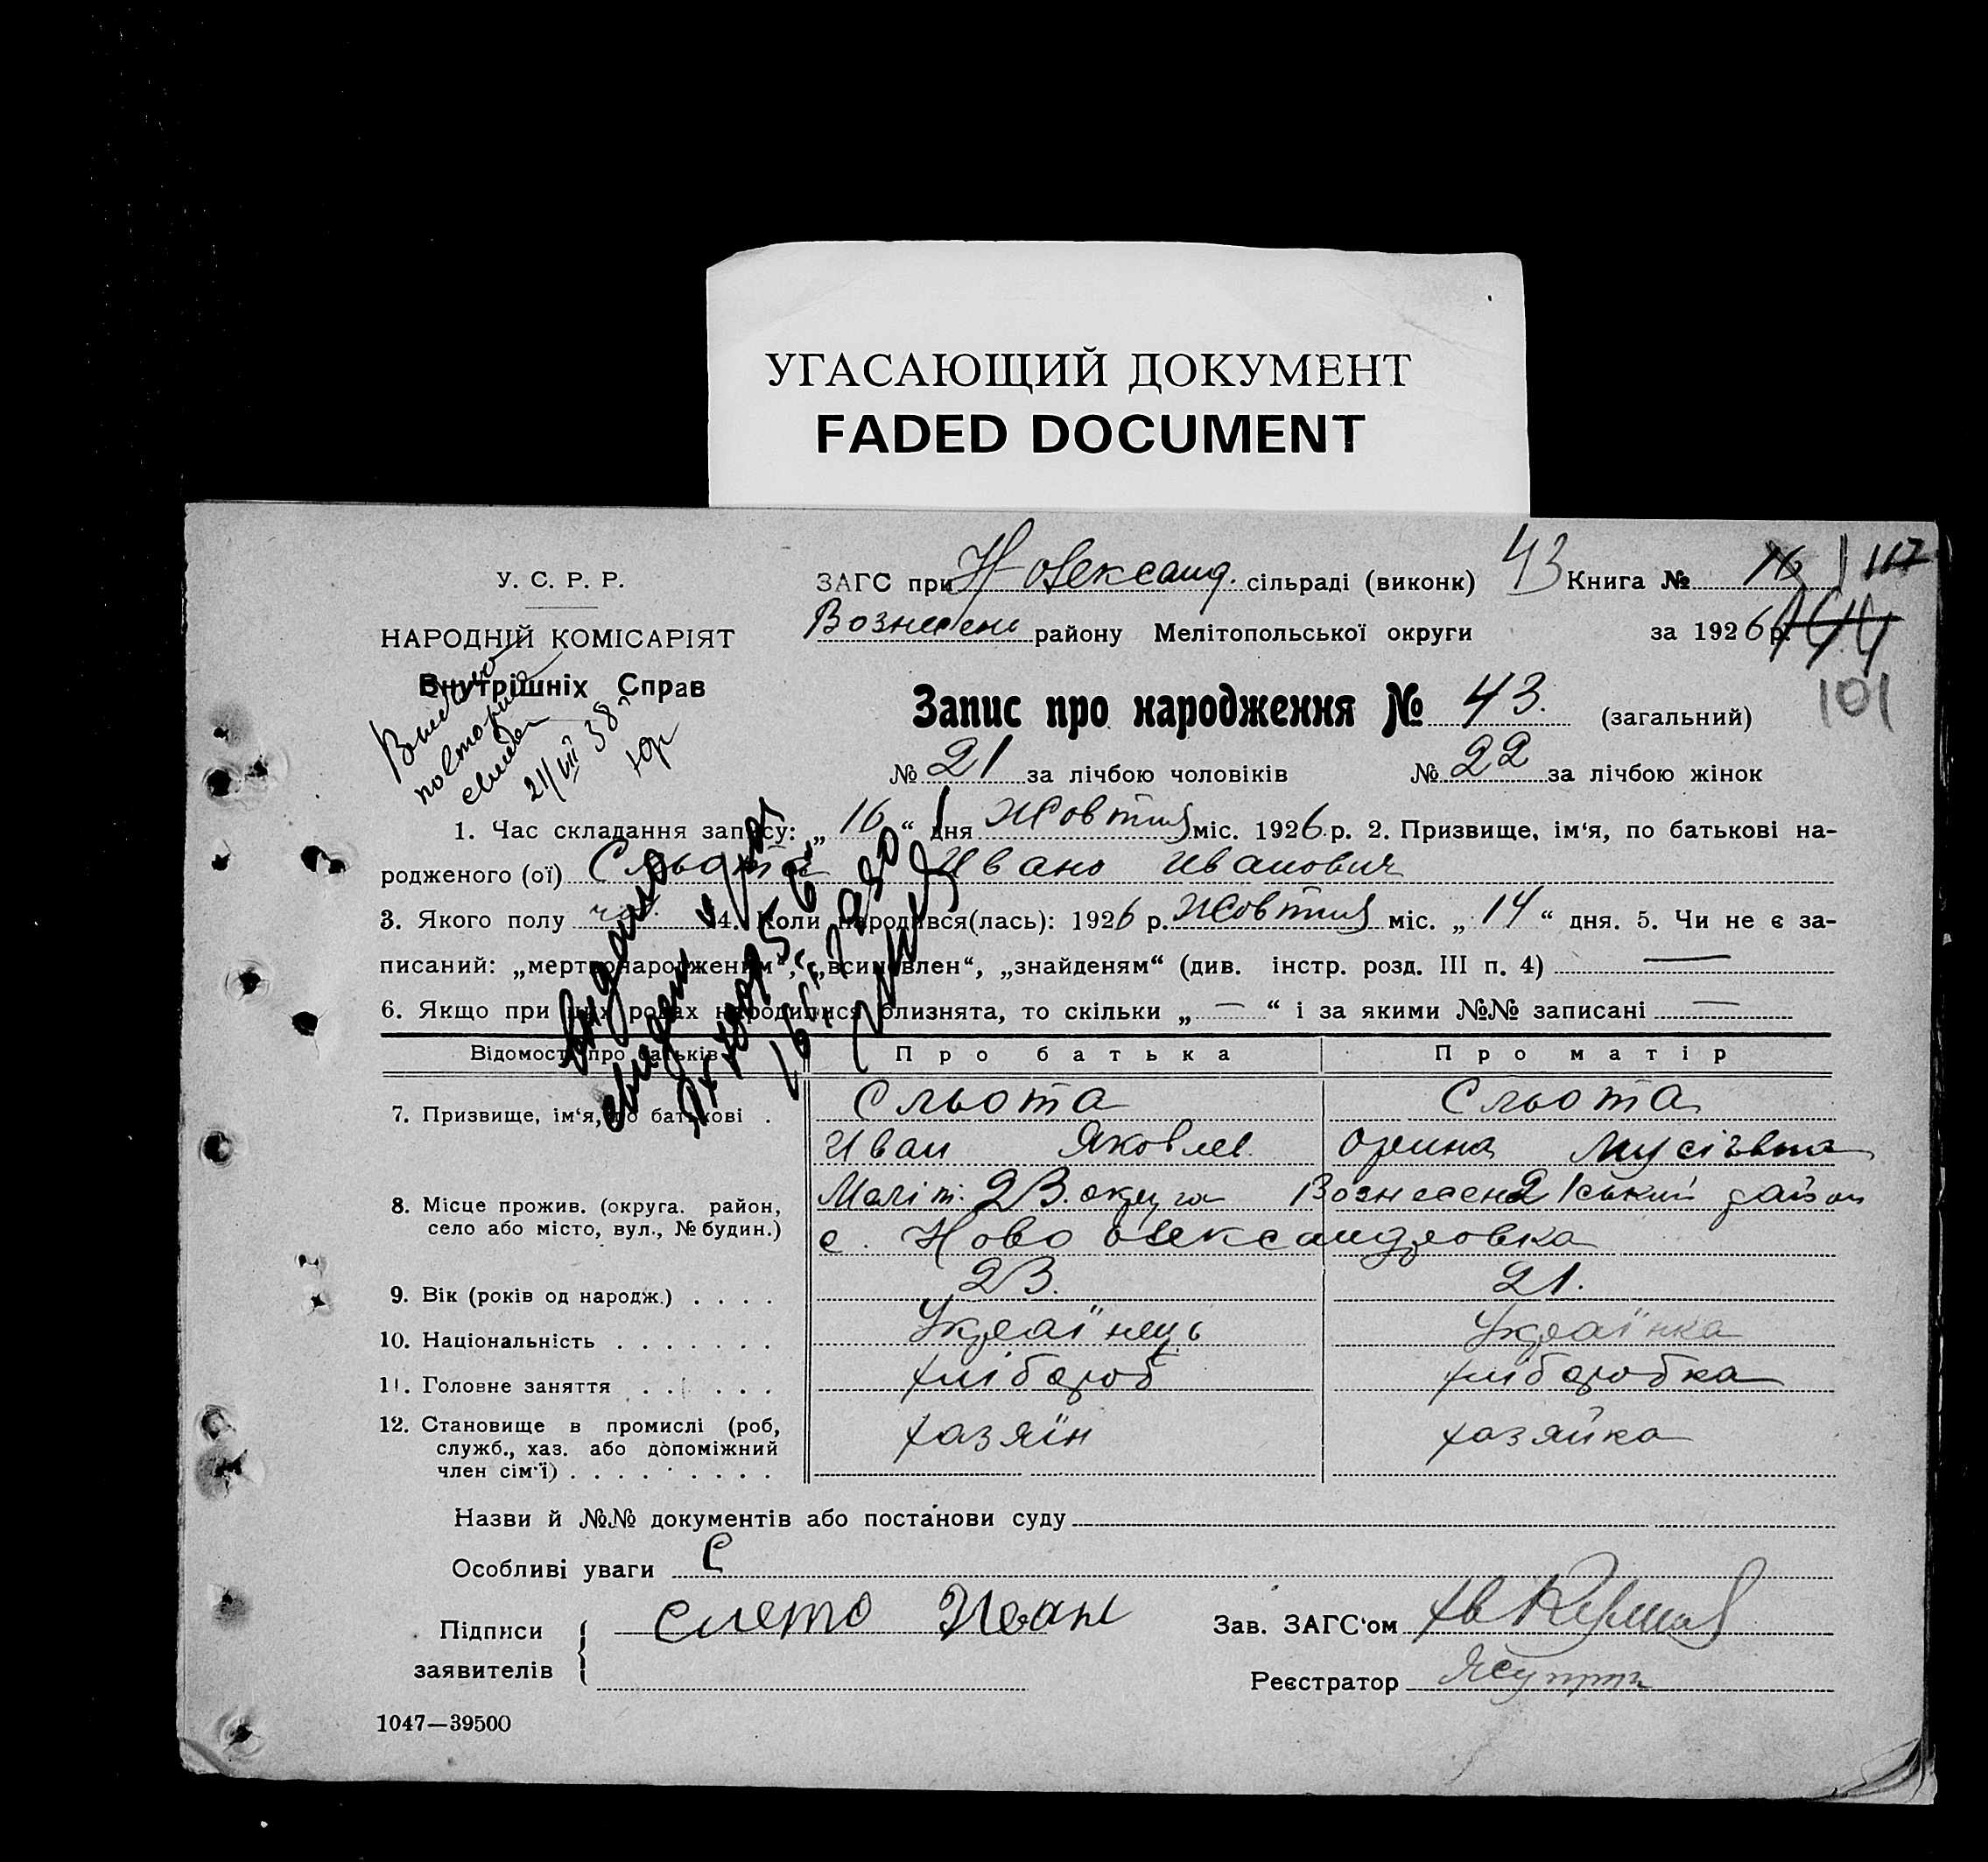 УГАСАЮЩИЙ ДОКУМЕНТ
FADED DOCUMENT
У. С. Р. Р.
НАРОДНІЙ КОМІСАРІЯТ
Внутрішніх Справ
ЗАГС при Н-Олександ. сільраді (виконк) 43 Книга № 16 117
Вознесенс району Мелітопольської округи за 1926 р. 144
101
Запис про народження № 43. (загальний)
№ 21 за лічбою чоловіків № 22 за лічбою жінок
Видано
повторне
свидет
21/VII 38 г
1. Час складання запису: „16“ дня Жовтня міс. 1926 р. 2. Призвище, ім‘я, по батькові на-
родженого (ої) Сльота Ивано Иванович
3. Якого полу чол. 4. Коли народився(лась): 1926 р. Жовтня міс. „14“ дня. 5. Чи не є за-
писаний: „мертвонародженим“, „всиновлен“, „знайденям“ (див. інстр. розд. III п. 4) —
6. Якщо при цих родах народилися близнята, то скільки „—“ і за якими №№ записані —
Видано
свидет
Відомості про батьків Про батька Про матір
7. Призвище, ім‘я, по батькові . Сльота Сльота
Иван Яковлев. Орина Мусієвна
8. Місце прожив. (округа. район, Меліт. округа Вознесенський район
село або місто, вул., № будин.) с. Ново Олександровка
9. Вік (років од народж.) . . . . 23. 21.
10. Національність . . . . . . . Украінець Украінка
11. Головне заняття . . . . . хлібороб хліборобка
12. Становище в промислі (роб, хазяїн хазяйка
служб., хаз. або допоміжний
член сім‘ї) . . . . . . . . .
Назви й №№ документів або постанови суду
Особливі уваги С
Підписи Слето Иван Зав. ЗАГС‘ом
заявителів Реєстратор
1047—39500